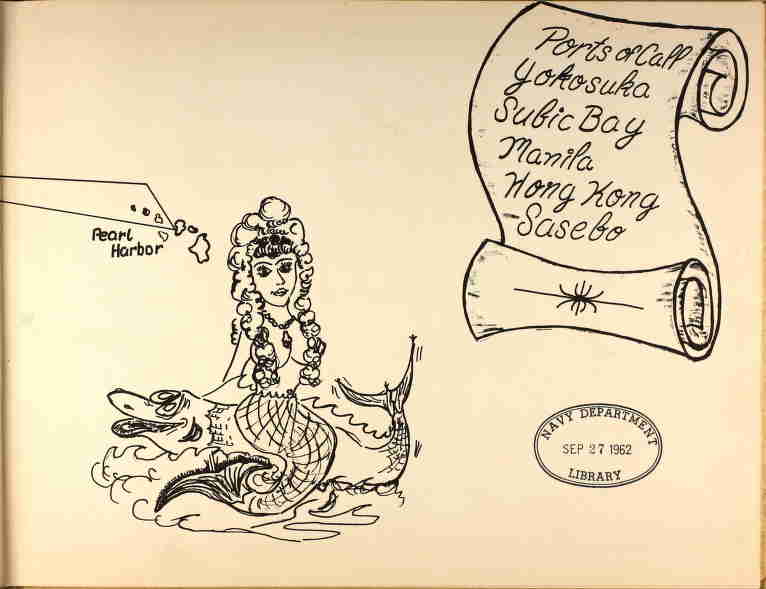 Ports of Call
Yokosuka
Subic Bay
Manila
Hong Kong
Sasebo
Pearl
Harbor
NAVY DEPARTMENT
SEP 27 1962
LIBRARY